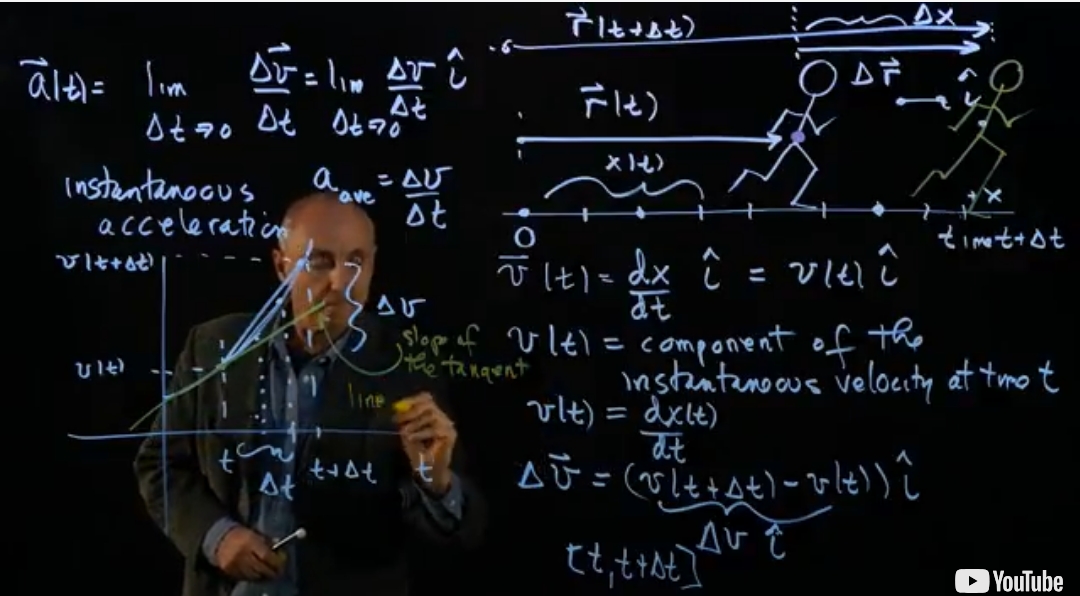 a⃗(t) = lim Δv⃗/Δt = lim Δv/Δt î
Δt→0 Δt→0
instantaneous
acceleration
a_ave = Δv/Δt
v(t+Δt)
Δv
v(t)
slope of
the tangent
line
t
Δt
t+Δt
t
r⃗(t+Δt)
Δx
Δr⃗
î
r⃗(t)
x(t)
+x
0
time t+Δt
v⃗(t) = dx/dt î = v(t) î
v(t) = component of the
instantaneous velocity at time t
v(t) = dx(t)/dt
Δv⃗ = (v(t+Δt) - v(t)) î
Δv î
[t, t+Δt]
YouTube